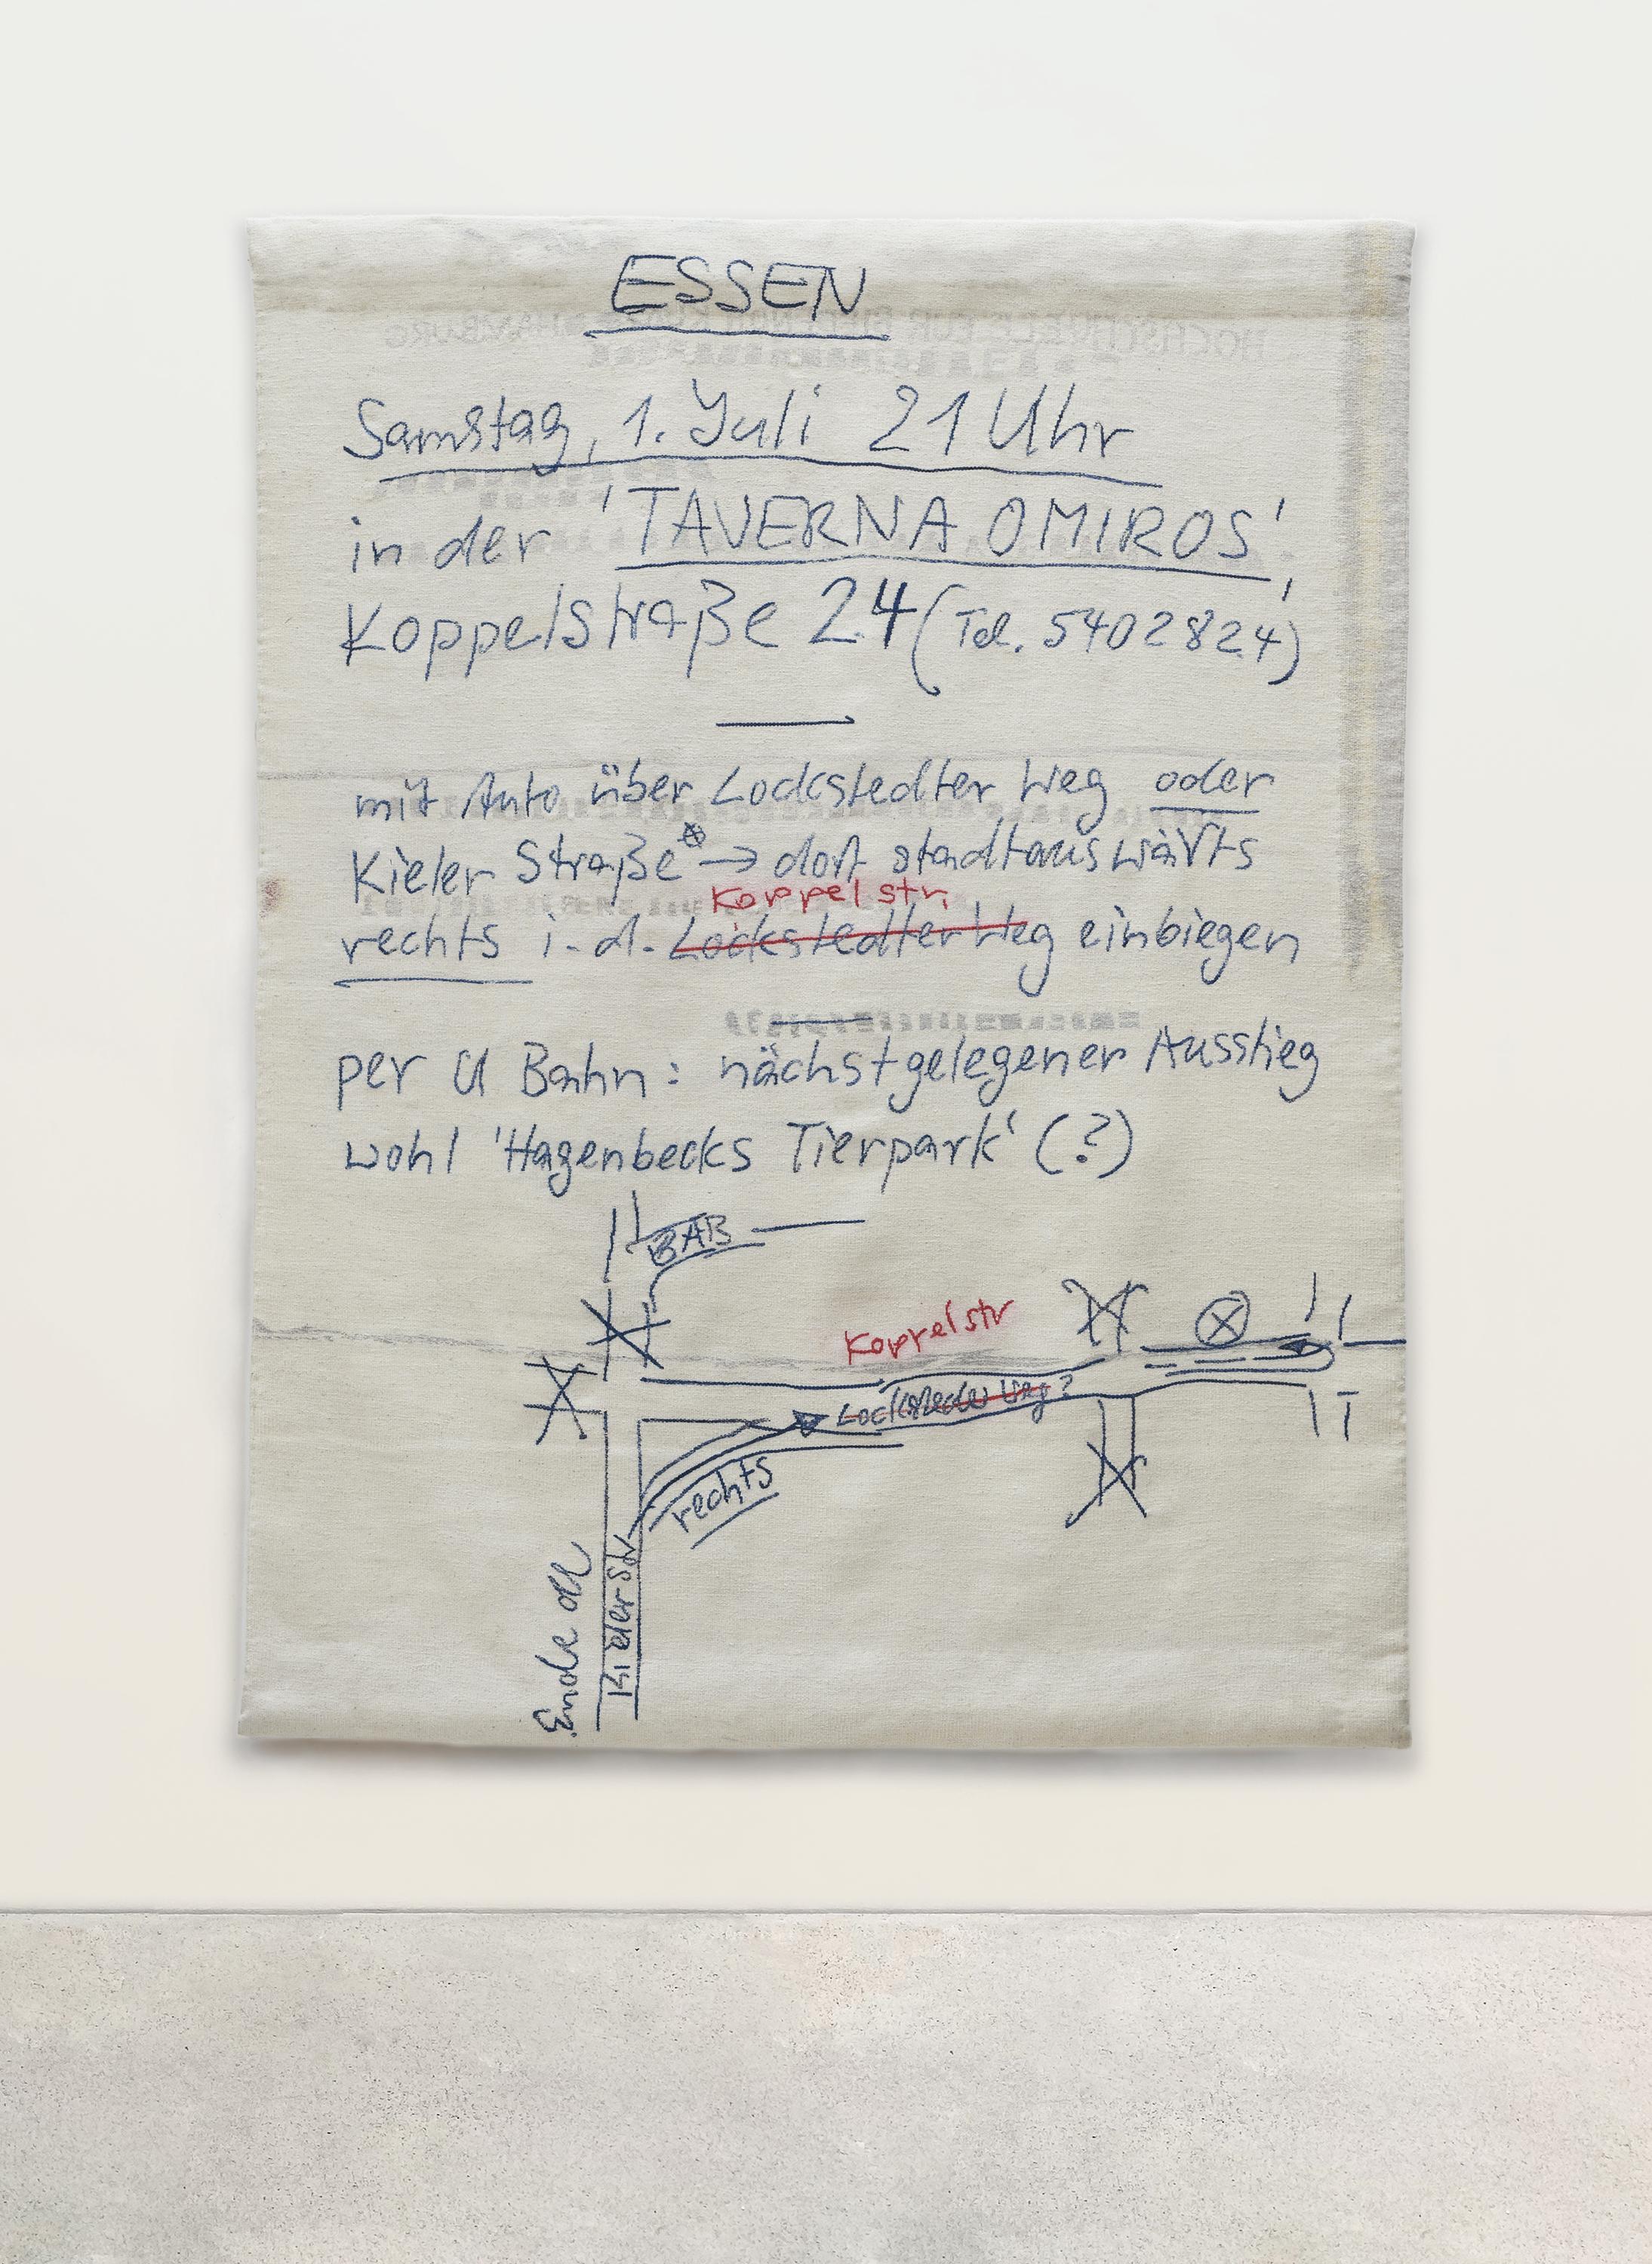 ESSEN
Samstag, 1. Juli 21 Uhr
in der 'TAVERNA OMIROS',
Koppelstraße 24 (Tel. 5402824)
mit Auto über Lockstedter Weg oder
Kieler Straße → dort stadtauswärts
Koppelstr.
rechts i.d. Lockstedter Weg einbiegen
per U Bahn: nächstgelegener Ausstieg
wohl 'Hagenbecks Tierpark' (?)
BAB
Koppelstr
Lockstedter Weg?
rechts
Ende der
Kieler Str